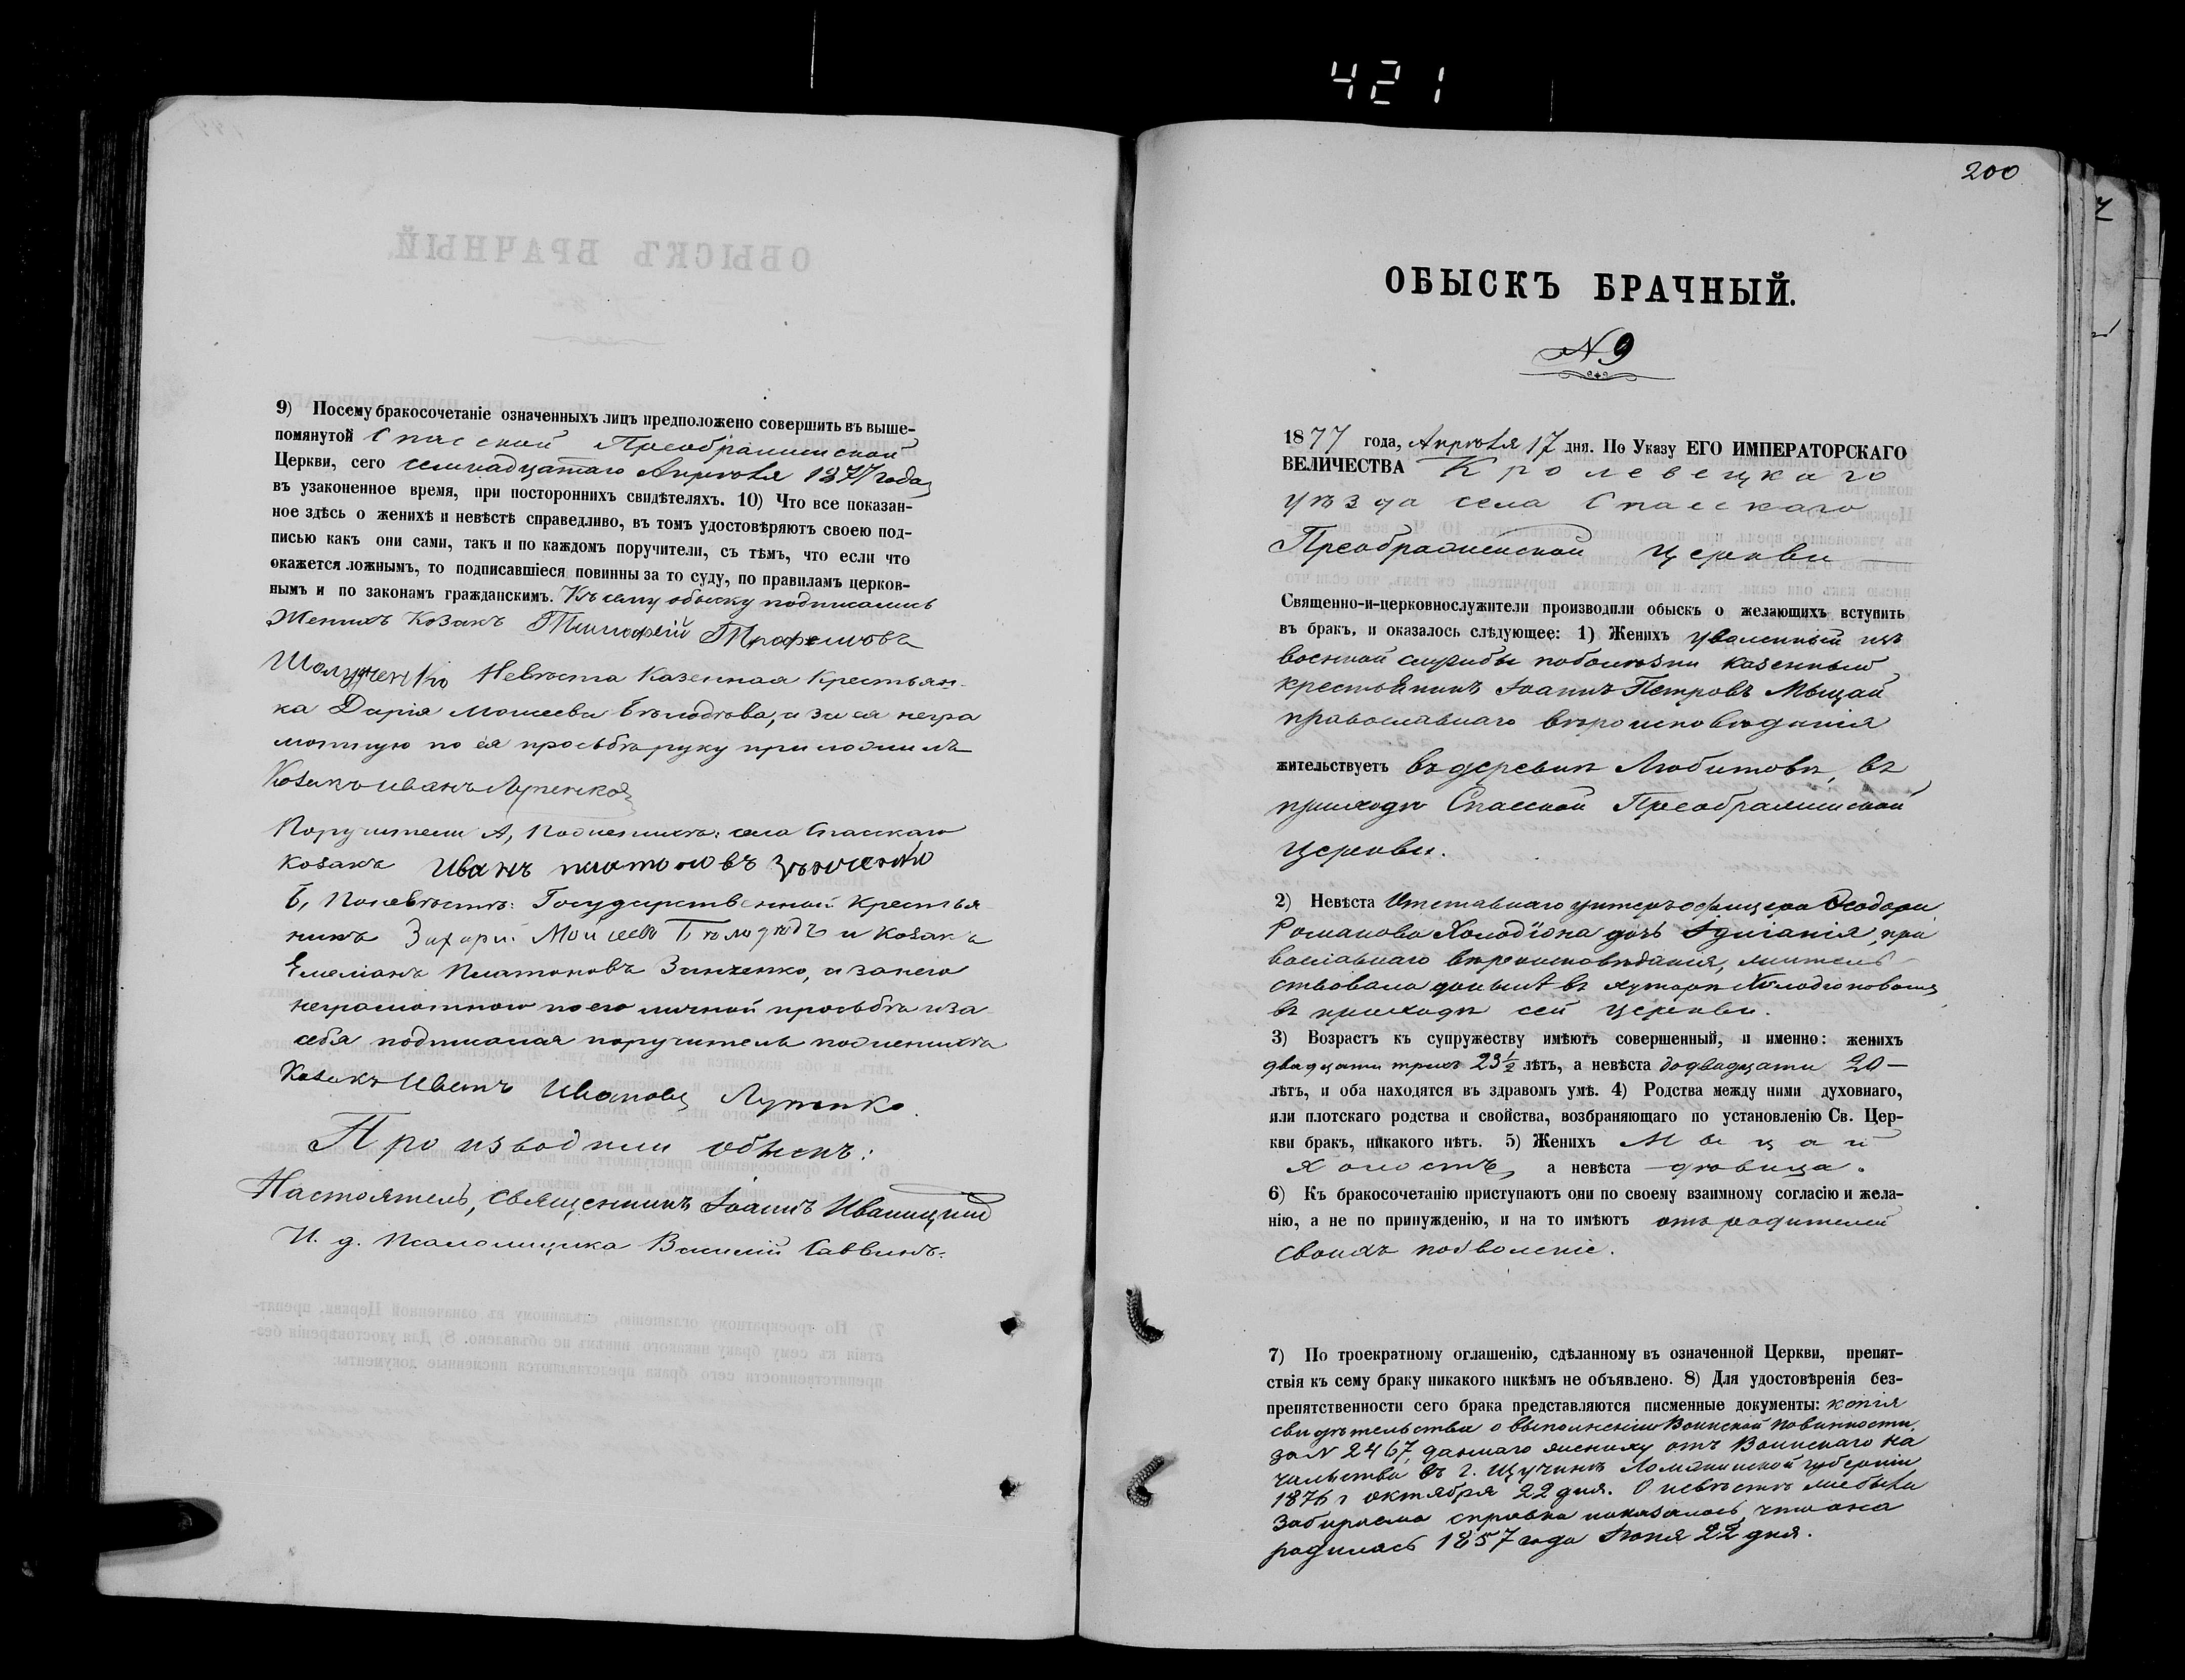 421
9) Посему бракосочетаніе означенныхъ лицъ предположено совершить въ выше-
помянутой Спасской Преображенской
Церкви, сего семнадцатаго Апрѣля 1877 года,
въ узаконенное время, при постороннихъ свидѣтеляхъ. 10) Что все показан-
ное здѣсь о женихѣ и невѣстѣ справедливо, въ томъ удостовѣряютъ своею под-
писью какъ они сами, такъ и по каждомъ поручители, съ тѣмъ, что если что
окажется ложнымъ, то подписавшіеся повинны за то суду, по правиламъ церков-
нымъ и по законамъ гражданскимъ. Къ сему обыску подписались
Женихъ Козакъ Тимофей Трофимовъ
Невѣста Казенная Крестьян-
ка Дарія Моисеева, а за ея негра
мотную по ея просьбѣ руку приложилъ
Козакъ иванъ Лупенко
Поручители А, По женихѣ: села Спасскаго
козакъ Иванъ платоновъ
Б, По невѣстѣ: Государственной Крестья
нинъ Захари Мойсеевъ и Козакъ
Емеліанъ Платоновъ Зинченко, а за него
неграмотного по его личной просьбѣ и за
себя подписался поручитель по женихѣ
Козакъ Иванъ Ивановъ Лупенко.
Производили обыскъ:
Настоятель, священникъ Іоаннъ Иваницкій
И. д. Псаломщика Василій Саввинъ.
200
ОБЫСКЪ БРАЧНЫЙ.
N 9
1877 года, Апрѣля 17 дня. По Указу ЕГО ИМПЕРАТОРСКАГО
ВЕЛИЧЕСТВА Кролевецкаго
уѣзда села Спасскаго
Преображенской церкви
Священно-и-церковнослужители производили обыскъ о желающихъ вступить
въ бракъ, и оказалось слѣдующее: 1) Женихъ уволенный изъ
военной службы по болѣзни казенный
крестьянинъ Іоаннъ Петровъ Мыцай
православнаго вѣроисповѣданія
жительствуетъ въ деревнѣ Любитовѣ, въ
приходѣ Спасской Преображенской
церкви.
2) Невѣста Отставнаго унтеръ офицера Ѳеодора
Романова Холодіона дочь, пра
вославнаго вѣроисповѣданія, житель
ствовала донынѣ въ хуторѣ
въ приходѣ сей церкви.
3) Возрастъ къ супружеству имѣютъ совершенный, и именно: женихъ
двадцати трехъ 23½ лѣтъ, а невѣста двадцати 20 —
лѣтъ, и оба находятся въ здравомъ умѣ. 4) Родства между ними духовнаго,
или плотскаго родства и свойства, возбраняющаго по установленію Св. Цер-
кви бракъ, никакого нѣтъ. 5) Женихъ Мыцай
холостъ, а невѣста дѣвица.
6) Къ бракосочетанію приступаютъ они по своему взаимному согласію и жела-
нію, а не по принужденію, и на то имѣютъ отъ родителей
своихъ позволеніе.
7) По троекратному оглашенію, сдѣланному въ означенной Церкви, препят-
ствія къ сему браку никакого никѣмъ не объявлено. 8) Для удостовѣренія без-
препятственности сего брака представляются писменные документы: копія
свидѣтельства о выполненіи Воинской повинности
за N 2467, даннаго жениху отъ Воинскаго на
чальства въ г. Щучинѣ Ломжинской губерніи
1876 г октября 22 дня. О невѣстѣ
справка показалось, что она
родилась 1857 года Іюня 22 дня.